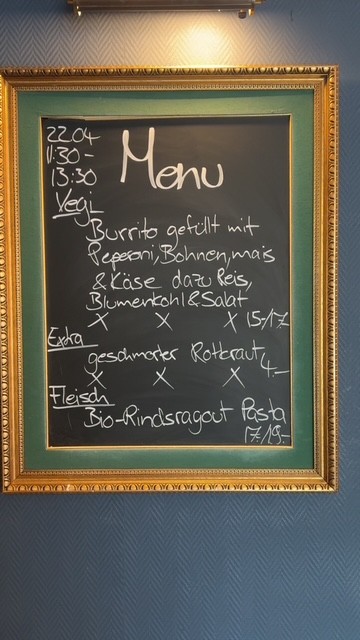 22.04
11:30-
13:30
Menu
Vegi
Burrito gefüllt mit
Peperoni, Bohnen, mais
& Käse dazu Reis,
Blumenkohl & Salat
X X X 15/17
Extra
geschmorter Rotkraut 4.-
X X X
Fleisch
Bio-Rindsragout Pasta
17/19.-